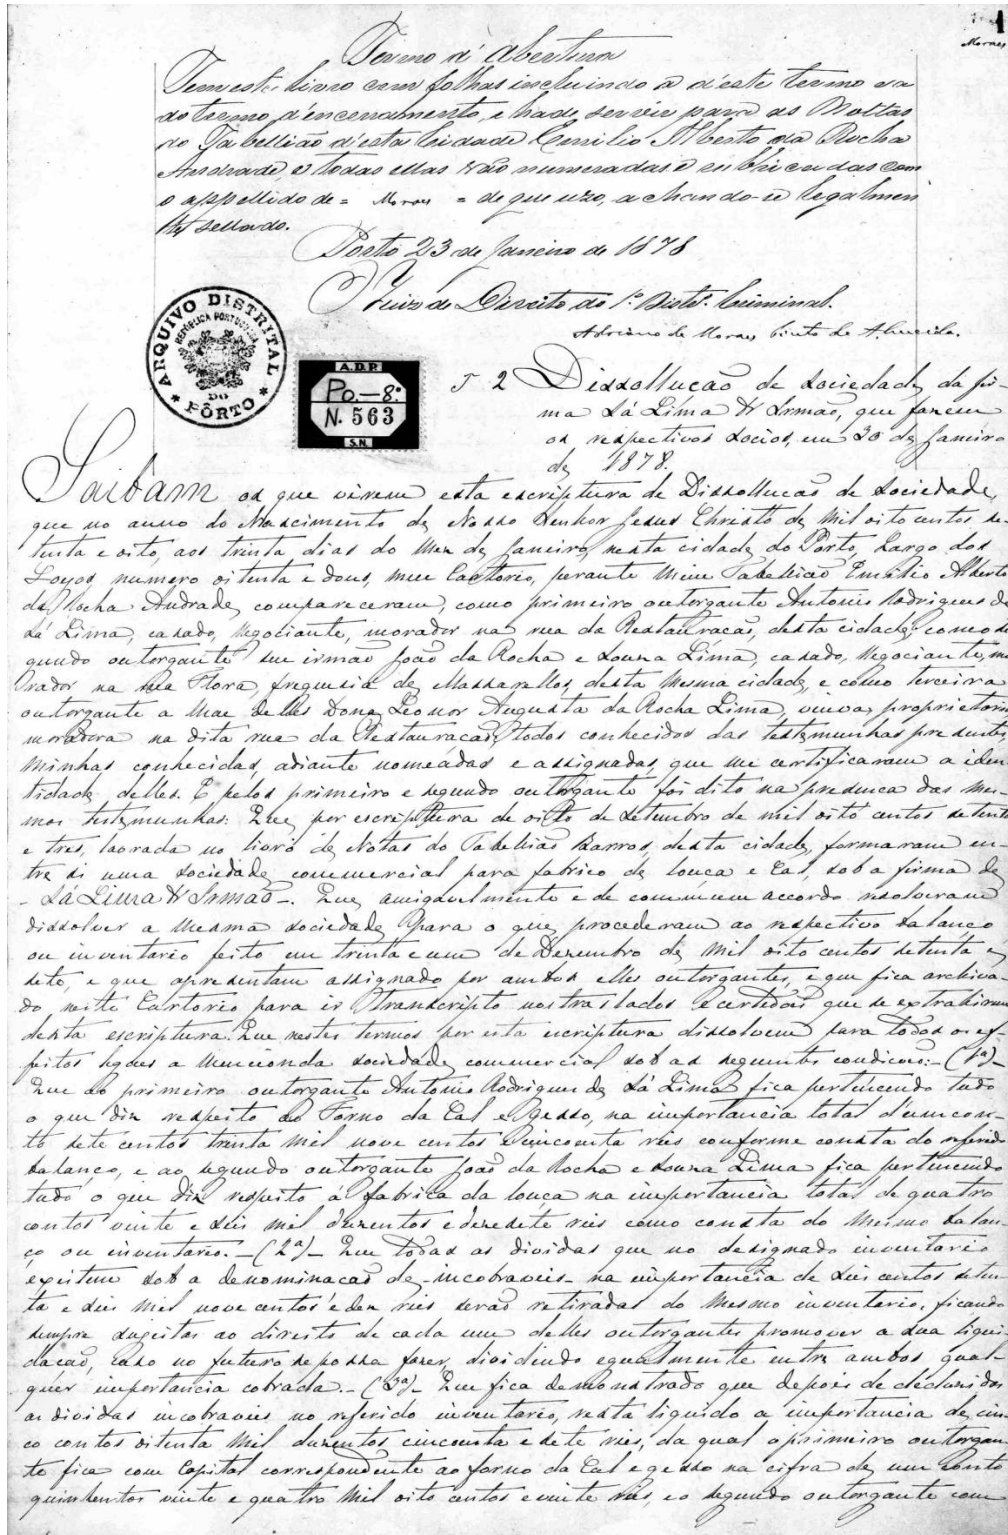 1
Moraes
Termo d'Abertura
Tem este livro cem folhas incluindo a d'este termo e a
do termo d'encerramento, e hade servir para as Nottas
do Tabellião d'esta Cidade Emilio Alberto da Rocha
Andrade, e todas ellas vão numeradas e rubricadas com
o appellido de = Moraes = de que uzo, achando-se legalmen
te sellado.
Porto 23 de Janeiro de 1878
O Juiz de Direito do 1º Distrº. Criminal.
Adriano de Moraes Pinto de Almeida.
ARQUIVO DISTRITAL
REPÚBLICA PORTUGUESA
DO
PÔRTO
A.D.P.
Po.-8º
N. 563
S.N.
2 Dissollução de Sociedade da fir-
ma Sá Lima & Irmão, que fazem
os respectivos socios, em 30 de Janeiro
de 1878.
Saibam os que virem esta escriptura de Dissollucão de Sociedade,
que no anno do Nascimento de Nosso Senhor Jesus Christo de mil oito centos se-
tenta e oito, aos trinta dias do mez de Janeiro, nesta cidade do Porto, Largo dos
Loyos, numero oitenta e dous, meu Cartorio, perante mim Tabellião Emilio Alberto
da Rocha Andrade, compareceram, como primeiro outorgante Antonio Rodrigues de
Sá Lima, casado, Negociante, morador na rua da Restauração, desta cidade, como se
gundo outorgante seu irmão João da Rocha e Souza Lima, casado, Negociante, mo
rador na rua Flora, freguesia de Massarellos, desta mesma cidade, e como terceira
outorgante a Mae delles Dona Leonor Augusta da Rocha Lima, viuva, proprietaria
moradora na dita rua da Restauração, todos conhecidos das testemunhas presentes,
minhas conhecidas, adiante nomeadas e assignadas, que me certificaram a iden
tidade delles. E pelos primeiro e segundo outorgante foi dito na presença das mes-
mas testemunhas: Que, por escriptura de oito de Setembro de mil oito centos setenta
e tres, lavrada no livro de Notas do Tabellião Barros, desta cidade, formaram en-
tre si uma sociedade commercial para fabrico de louça e Cal, sob a firma de
- Sá Lima & Irmão -. Que, amigavelmente e de commum accordo resolveram
dissolver a mesma sociedade, para o que procederam ao respectivo balanco
ou inventario feito em trinta e um de Dezembro de mil oito centos setenta e
sete, e que apresentam assignado por ambos elles outorgantes, e que fica archiva-
do neste Cartorio para ir transcripto nos traslados e certidões que se extrahirem
desta escriptura. Que nestes termos por esta escriptura dissolvem para todos os ef-
feitos legaes a mencionda sociedade commercial sob as seguintes condicoes: - (1ª) -
Que ao primeiro outorgante Antonio Rodrigues de Sá Lima fica pertencendo tudo
o que diz respeito ao Forno da Cal e Gesso, na importancia total d'um con-
to sete centos trinta mil nove centos e cincoenta réis conforme consta do referido
balanço, e ao segundo outorgante João da Rocha e Souza Lima fica pertencendo
tudo o que diz respeito á fabrica da louça na importancia total de quatro
contos vinte e seis mil duzentos e dezesete réis como consta do mesmo balan-
ço ou inventario. - (2ª) - Que todas as dividas que no designado inventario
existem sob a denominacão de - incobraveis - na importancia de seis centos seten
ta e seis mil nove centos e dez réis serão retiradas do mesmo inventario, ficando
sempre sugeitas ao direito de cada um delles outorgantes promover a sua liqui
dacão, caso no futuro se possa fazer, dividindo egualmente entre ambos qual-
quer importancia cobrada. - (3ª) - Que fica demonstrado que depois de deduzidas
as dividas incobraveis no referido inventario, resta liquido a importancia de cin
co contos oitenta mil duzentos cincoenta e sete réis, da qual o primeiro outorgan
te fica com Capital correspondente ao forno da Cal e gesso na cifra de um conto
quinhentos vinte e quatro mil oito centos e vinte réis, e o segundo outorgante com